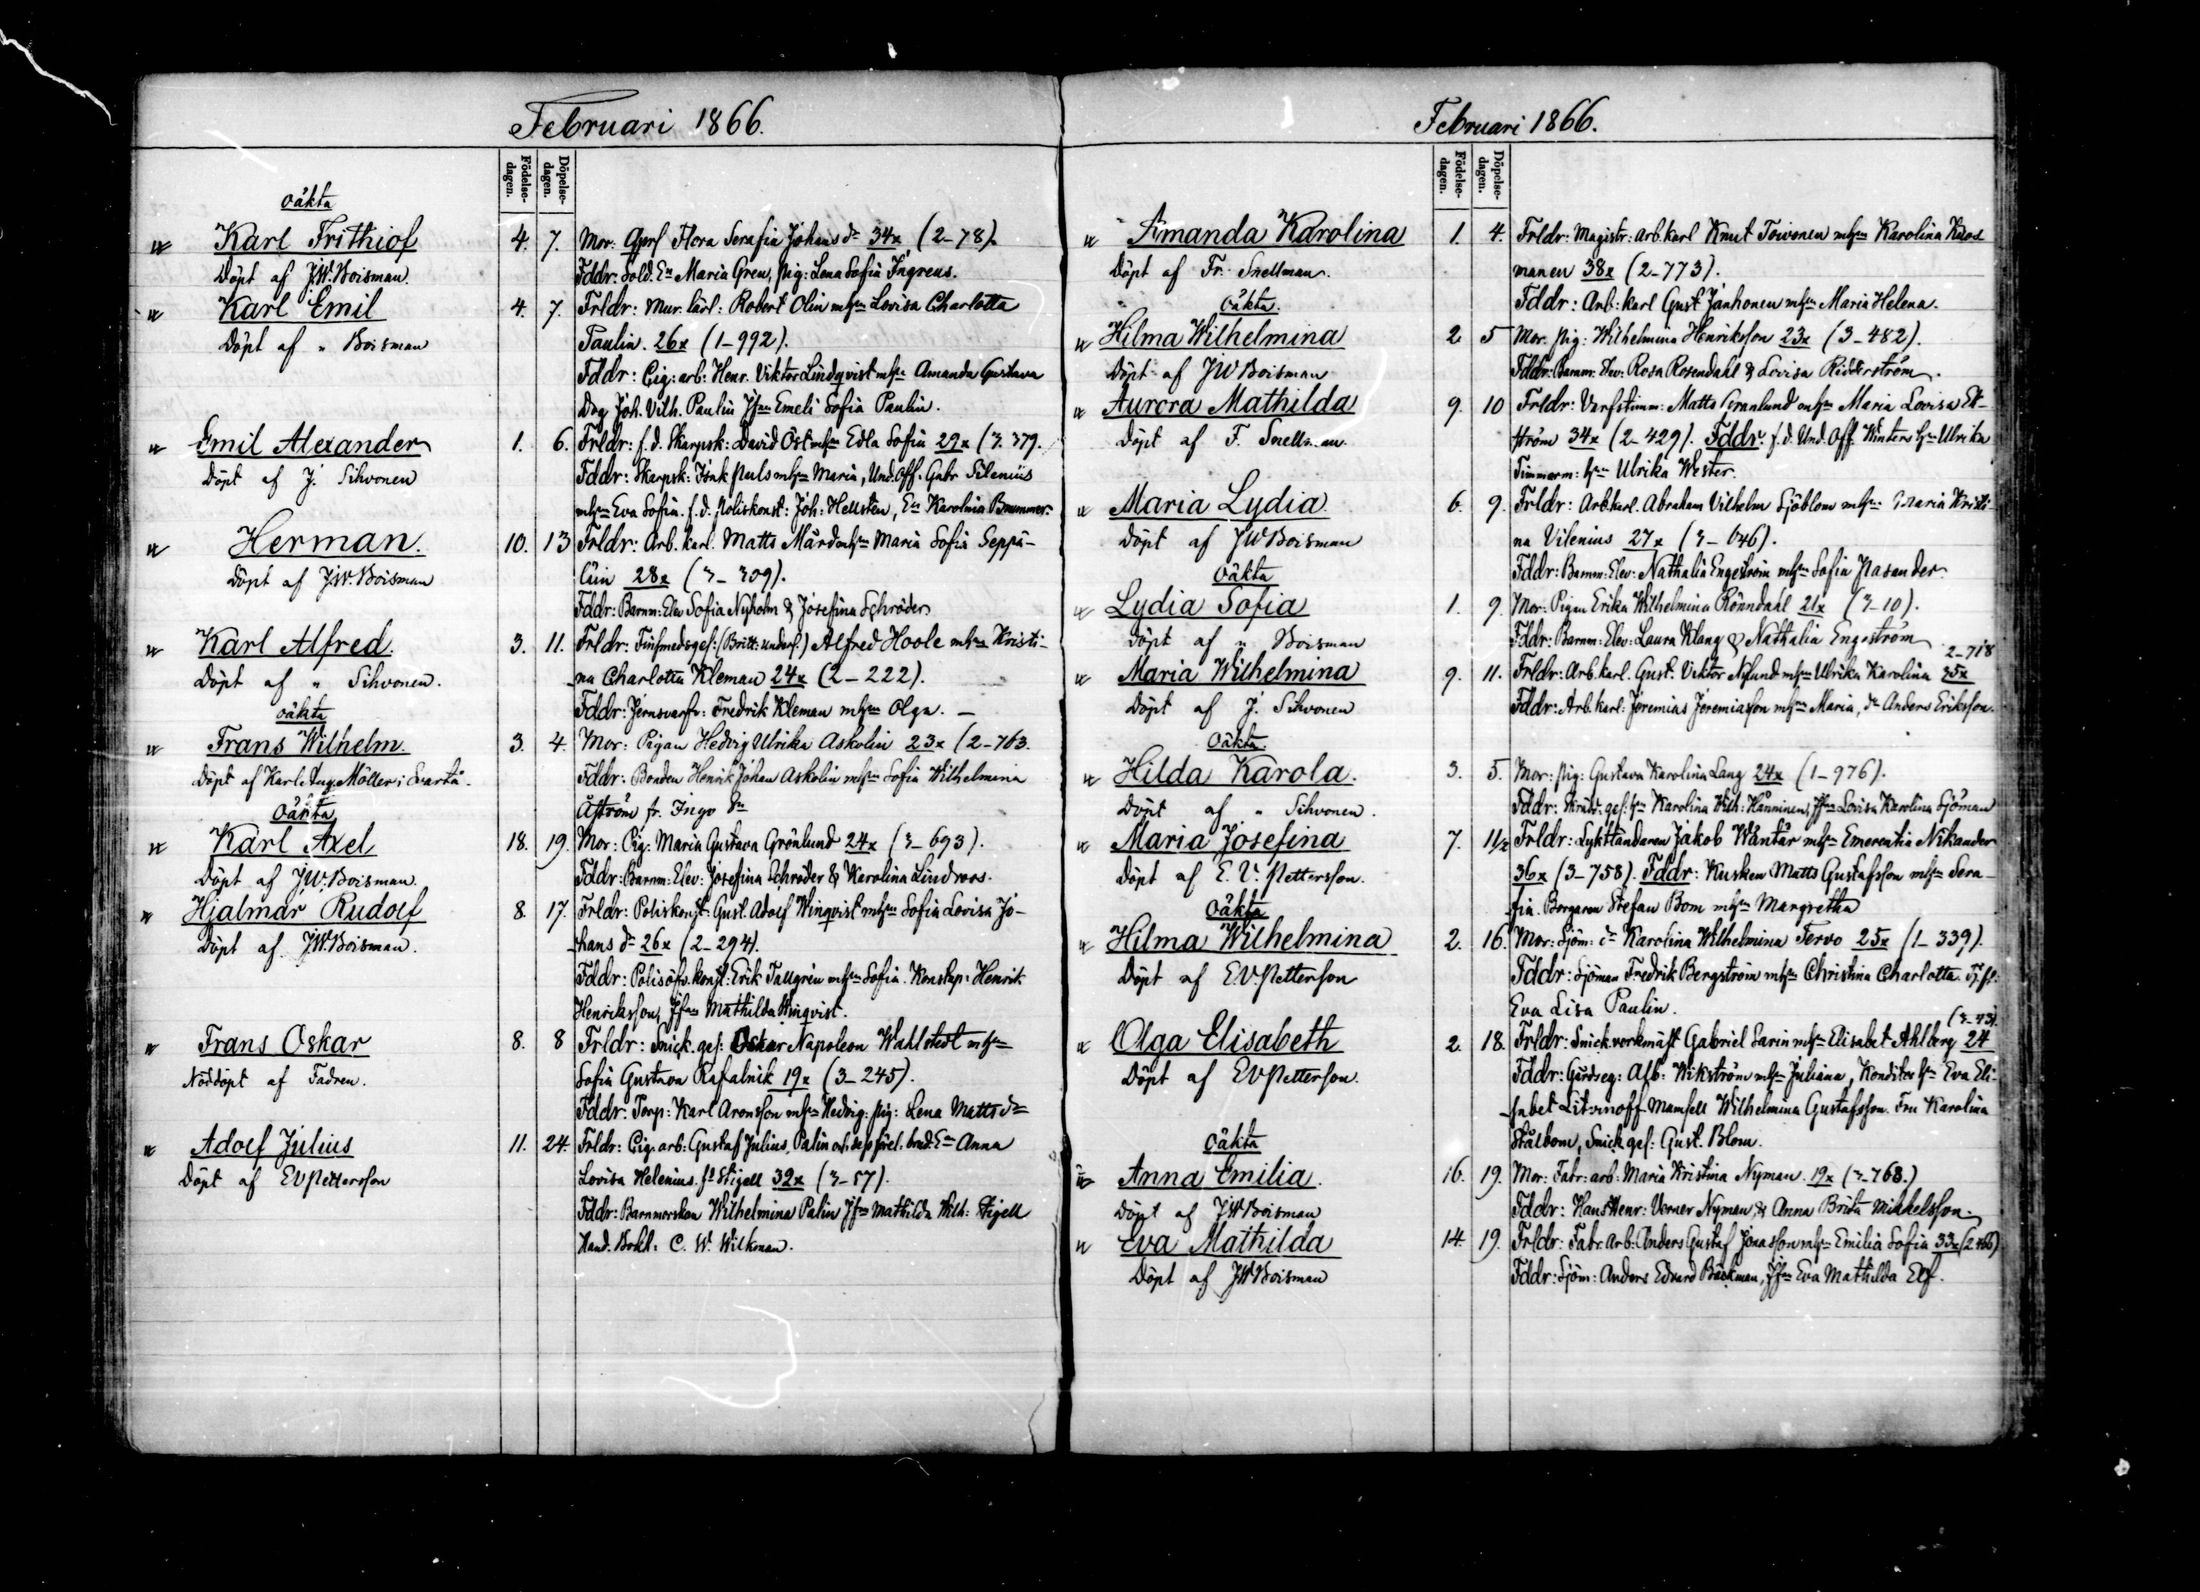 Februari 1866.
Födelse-
dagen.
Döpelse-
dagen.
oäkta
Karl Frithiof 4. 7. Mor: Flora Serafia Johansdr 34x (2-78).
Döpt af J.W. Boisman. Fddr: Sold. En Maria Gren, pig: Lena Sofia Ingreus.
Karl Emil 4. 7. Frldr: Mur. lärl: Robert Olin mhu Lovisa Charlotta
Döpt af " Boisman Paulin. 26x (1-992).
Fddr: Cig: arb: Henr. Viktor Lindqvist mhu Amanda Gustava
Drg Joh. Vilh. Paulin Jfun Emeli Sofia Paulin.
Emil Alexander 1. 6. Frldr: f.d. Skarpsk: David Öst mhu Edla Sofia 29x (3.379.
Döpt af J. Sihvonen Fddr: Skarpsk: Isak Puls mhu Maria, Und.Off: Gabr Silenius
mhu Eva Sofia. f.d. poliskonst: Joh: Hellsten, En Karolina Brummer.
Herman. 10. 13 Frldr: Arb. karl. Matts Mård mhu Maria Sofia Seppä-
Döpt af J.W. Boisman lüin 28x (3-309).
Fddr: Barnm: Elev Sofia Nyholm & Josefina Schröder
Karl Alfred. 3. 11. Frldr: Finsmedsges: (Britt: unders:) Alfred Hoole mhu Kristi-
Döpt af " Sihvonen. na Charlotta Kleman 24x (2-222).
oäkta Fddr: Jernsvarfv: Fredrik Kleman mhu Olga. —
Frans Wilhelm. 3. 4. Mor: Pigan Hedvig Ulrika Askolin 23x (2-763.
Döpt af Karl Aug. Möller i Svartå. Fddr: Bonden Henrik Johan Askolin mhu Sofia Wilhelmina
oäkta Åström fr. Ingo
Karl Axel 18. 19. Mor: Pig: Maria Gustava Grönlund 24x (3-693).
Döpt af J.W. Boisman. Fddr: Barnm: Elev: Josefina Schröder & Karolina Lindroos.
Hjalmar Rudolf 8. 17. Frldr: Poliskonst: Gust. Adolf Winqvist mhu Sofia Lovisa Jo-
Döpt af J.W. Boisman. hansdr 26x (2-294).
Fddr: Polisöfv. konst: Erik Tallgren mhu Sofia. Konstap: Henrik
Henriksson, Jfun Mathilda Winqvist.
Frans Oskar 8. 8 Frldr: Snick. ges: Oskar Napoleon Wahlstedt mhu
Nöddöpt af Fadren. Sofia Gustava Rafalnik 19x (3-245).
Fddr: Torp: Karl Aronsson mhu Hedvig: pig: Lena Mattsdr
Adolf Julius 11. 24. Frldr: Cig: arb: Gustaf Julius Palin och Anna
Döpt af E V Pettersson Lovisa Helenius. fd Stigell 32x (3-57).
Fddr: Barnmorskan Wilhelmina Palin Jfun Mathilda Wilh: Stigell
Hand. Bokh: C. W. Wilkman.
Februari 1866.
Födelse-
dagen.
Döpelse-
dagen.
Amanda Karolina 1. 4. Frldr: Magistr: arb. karl Knut Toivonen mhu Karolina Kuos
Döpt af Fr. Snellman. manen 38x (2-773).
Fddr: Arb: karl Gust Janhonen mhu Maria Helena.
oäkta.
Hilma Wilhelmina 2 5 Mor. pig: Wilhelmina Henriksson 23x (3-482).
Döpt af J W Boisman Fddr: Barnm: Elev: Rosa Rosendahl & Lovisa Ridderström.
Aurora Mathilda 9. 10 Frldr: Varfstimm: Matts Granlund mhu Maria Lovisa Ek-
Döpt af F. Snellman. ström 34x (2-429). Fddr: f.d. Und. Off. Winters hu Ulrika
Timmerm: hu Ulrika Wester.
Maria Lydia 6. 9. Frldr: Arb.karl. Abraham Vilhelm Sjöblom mhu Maria Kristi-
Döpt af J W Boisman na Vilenius 27x (3-646).
oäkta Fddr: Barnm: Elev: Nathalia Engeström mhu Sofia Nasander
Lydia Sofia 1. 9. Mor: Pigan Erika Wilhelmina Rönndahl 21x (3-10).
Döpt af " Boisman Fddr: Barnm: Elev: Laura Klang & Nathalia Engeström
2-718
Maria Wilhelmina 9. 11. Frldr: Arb. karl. Gust. Viktor Nylund mhu Ulrika Karolina 35x
Döpt af J. Sihvonen Fddr: Arb. karl: Jeremias Jeremiasson mhu Maria, dr Anders Eriksson.
oäkta.
Hilda Karola. 3. 5. Mor: pig: Gustava Karolina Lang 24x (1-976).
Döpt af " Sihvonen. Fddr: Skräd. ges: hu Karolina Wilh: Hänninen, Jfun Lovisa Karolina Sjöman
Maria Josefina 7. 11/2 Frldr: Lykttändaren Jakob Wäntär mhu Emerentia Nikander
Döpt af E. V. Pettersson. 36x (3-758). Fddr: Kusken Matts Gustafsson mhu Sera-
oäkta fia. Borgaren Stefan Bom mhu Margretha
Hilma Wilhelmina 2. 16. Mor: Sjöm: dr Karolina Wilhelmina Tervo 25x (1-339).
Döpt af E.V. Pettersson Fddr: Sjöman Fredrik Bergström mhu Christina Charlotta.
Eva Lisa Paulin.
(3-43).
Olga Elisabeth 2. 18. Frldr: Snick.verkmäst Gabriel Sarin mhu Elisabet Ahlberg 24
Döpt af E V Pettersson. Fddr: Gårdseg: Alb: Wikström mhu Juliana, Konditor hu Eva Eli-
sabet Litvinoff. Mamsell Wilhelmina Gustafsson. Fru Karolina
oäkta Stålbom, Snick ges: Gust. Blom.
Anna Emilia. 16. 19. Mor: Fabr: arb: Maria Kristina Nyman. 19x (3-768.)
Döpt af J W Boisman Fddr: Hans Henr: Verner Nyman, & Anna Brita Mikkelsson.
Eva Mathilda 14. 19. Frldr: Fabr. Arb: Anders Gustaf Jonasson mhu Emilia Sofia 33x (2-466)
Döpt af J W Boisman Fddr: Sjöm: Anders Edvard Bäckman, Jfun Eva Mathilda Elf.